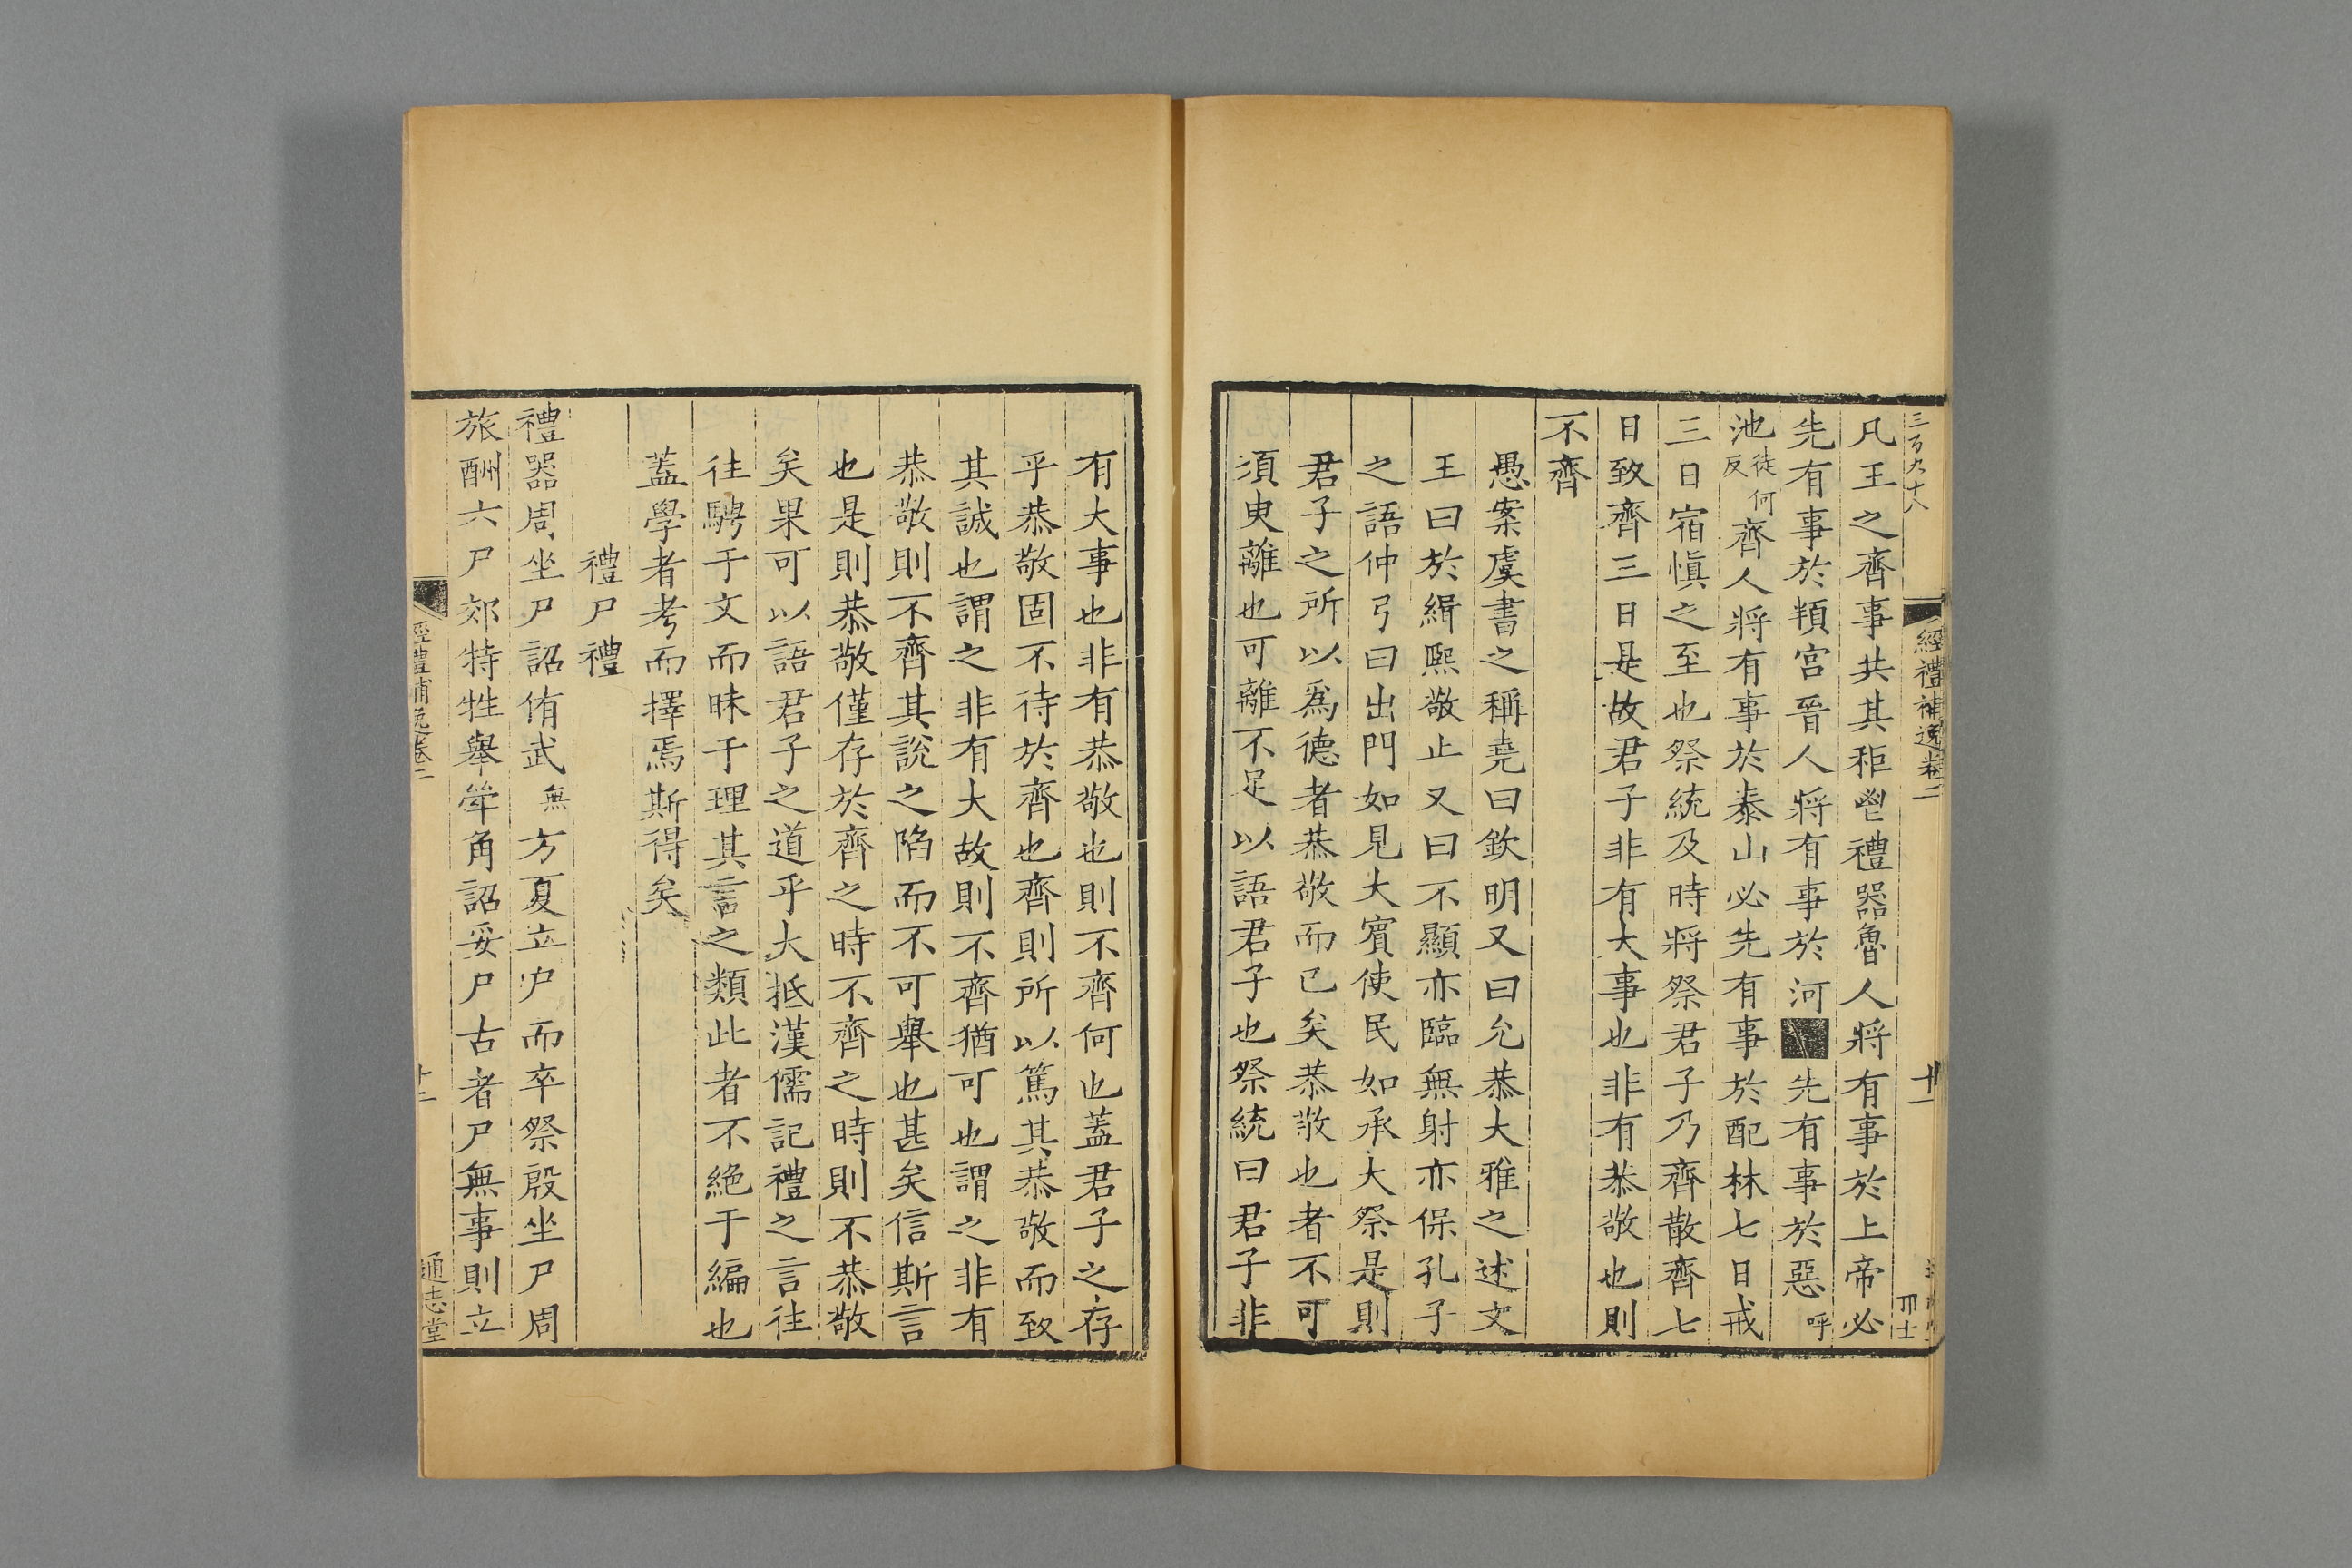 三百九十八
經禮補逸卷二
十一
凡王之齊事共其秬鬯禮器魯人將有事於上帝必
先有事於頖宮晉人將有事於河先有事於惡呼
池徒何反齊人將有事於泰山必先有事於配林七日戒
三日宿愼之至也祭統及時將祭君子乃齊散齊七
日致齊三日是故君子非有大事也非有恭敬也則
不齊
愚案虞書之稱堯曰欽明又曰允恭大雅之述文
王曰於緝熙敬止又曰不顯亦臨無射亦保孔子
之語仲弓曰出門如見大賓使民如承大祭是則
君子之所以爲德者恭敬而已矣恭敬也者不可
須臾離也可離不足以語君子也祭統曰君子非
有大事也非有恭敬也則不齊何也蓋君子之存
乎恭敬固不待於齊也齊則所以篤其恭敬而致
其誠也謂之非有大故則不齊猶可也謂之非有
恭敬則不齊其說之陷而不可舉也甚矣信斯言
也是則恭敬僅存於齊之時不齊之時則不恭敬
矣果可以語君子之道乎大抵漢儒記禮之言往
往騁于文而昧于理其言之類此者不絕于編也
蓋學者考而擇焉斯得矣
禮尸禮
禮器周坐尸詔侑武無方夏立尸而卒祭殷坐尸周
旅酬六尸郊特牲舉斝角詔妥尸古者尸無事則立
經禮補逸卷二
十二
通志堂